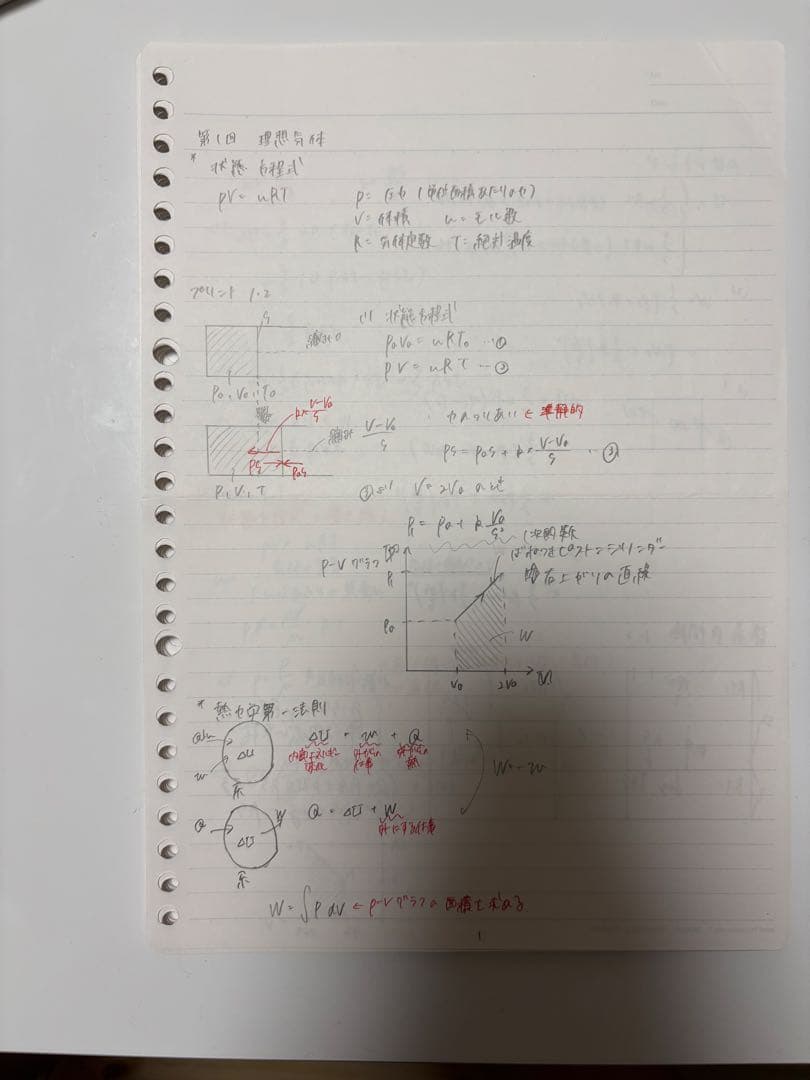 第1回 理想気体
* 状態方程式
pV = nRT
p = 圧力 (単位面積あたりの力)
V = 体積 n = モル数
R = 気体定数 T = 絶対温度
プリント 1.2
S
縮み 0
P₀, V₀, T₀
(1) 状態方程式
P₀V₀ = nRT₀ … ①
PV = nRT … ②
k × (V-V₀)/S
縮み (V-V₀)/S
PS
P₀S
P, V, T
・力のつりあい ← 準静的
PS = P₀S + k × (V-V₀)/S … ③
③より V = 2V₀ のとき
P₁ = P₀ + k V₀/S²
P-Vグラフ
1次関数
ばねつきピストン=シリンダー
右上がりの直線
P₁
P₀
W
V₀ 2V₀
* 熱力学第一法則
ΔU = w + Q
内部エネルギー変化
外からの仕事
外からの熱
w
ΔU
系
W = -w
Q = ΔU + W
外にする仕事
Q
W
ΔU
系
W = ∫P dV ← P-Vグラフの面積を求める
1